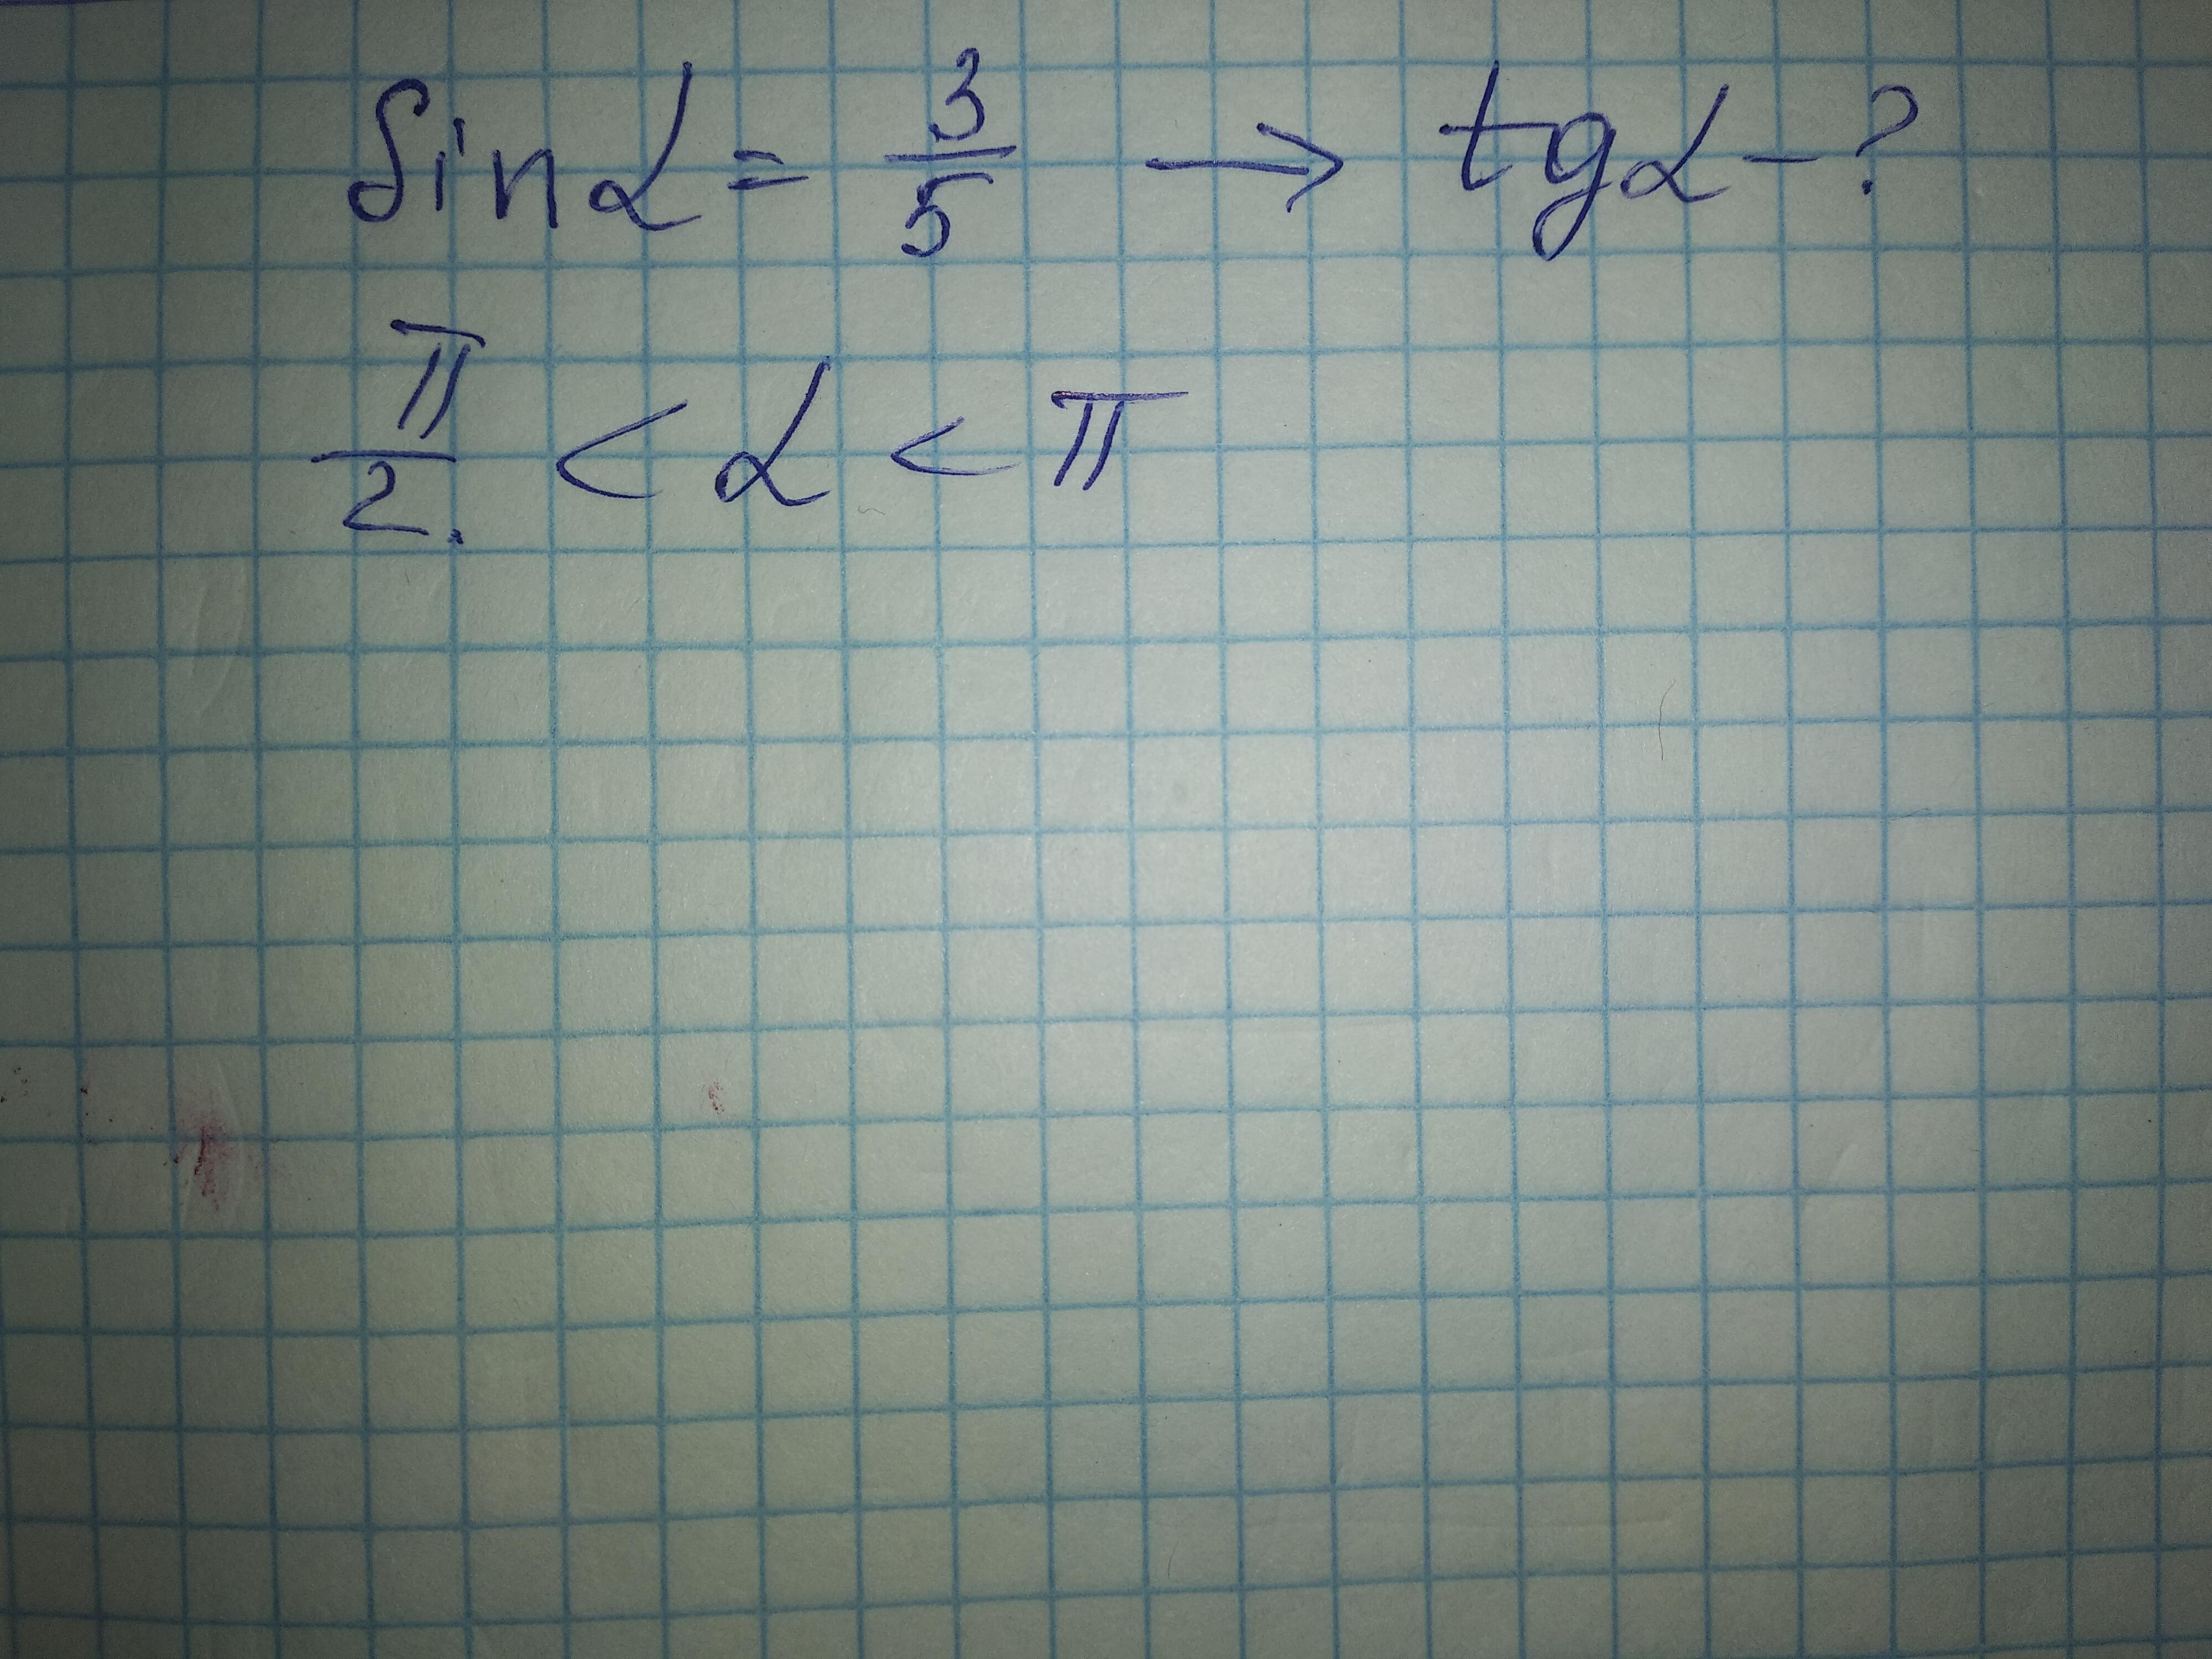 sin α = 3/5 → tg α - ?
π/2. < α < π